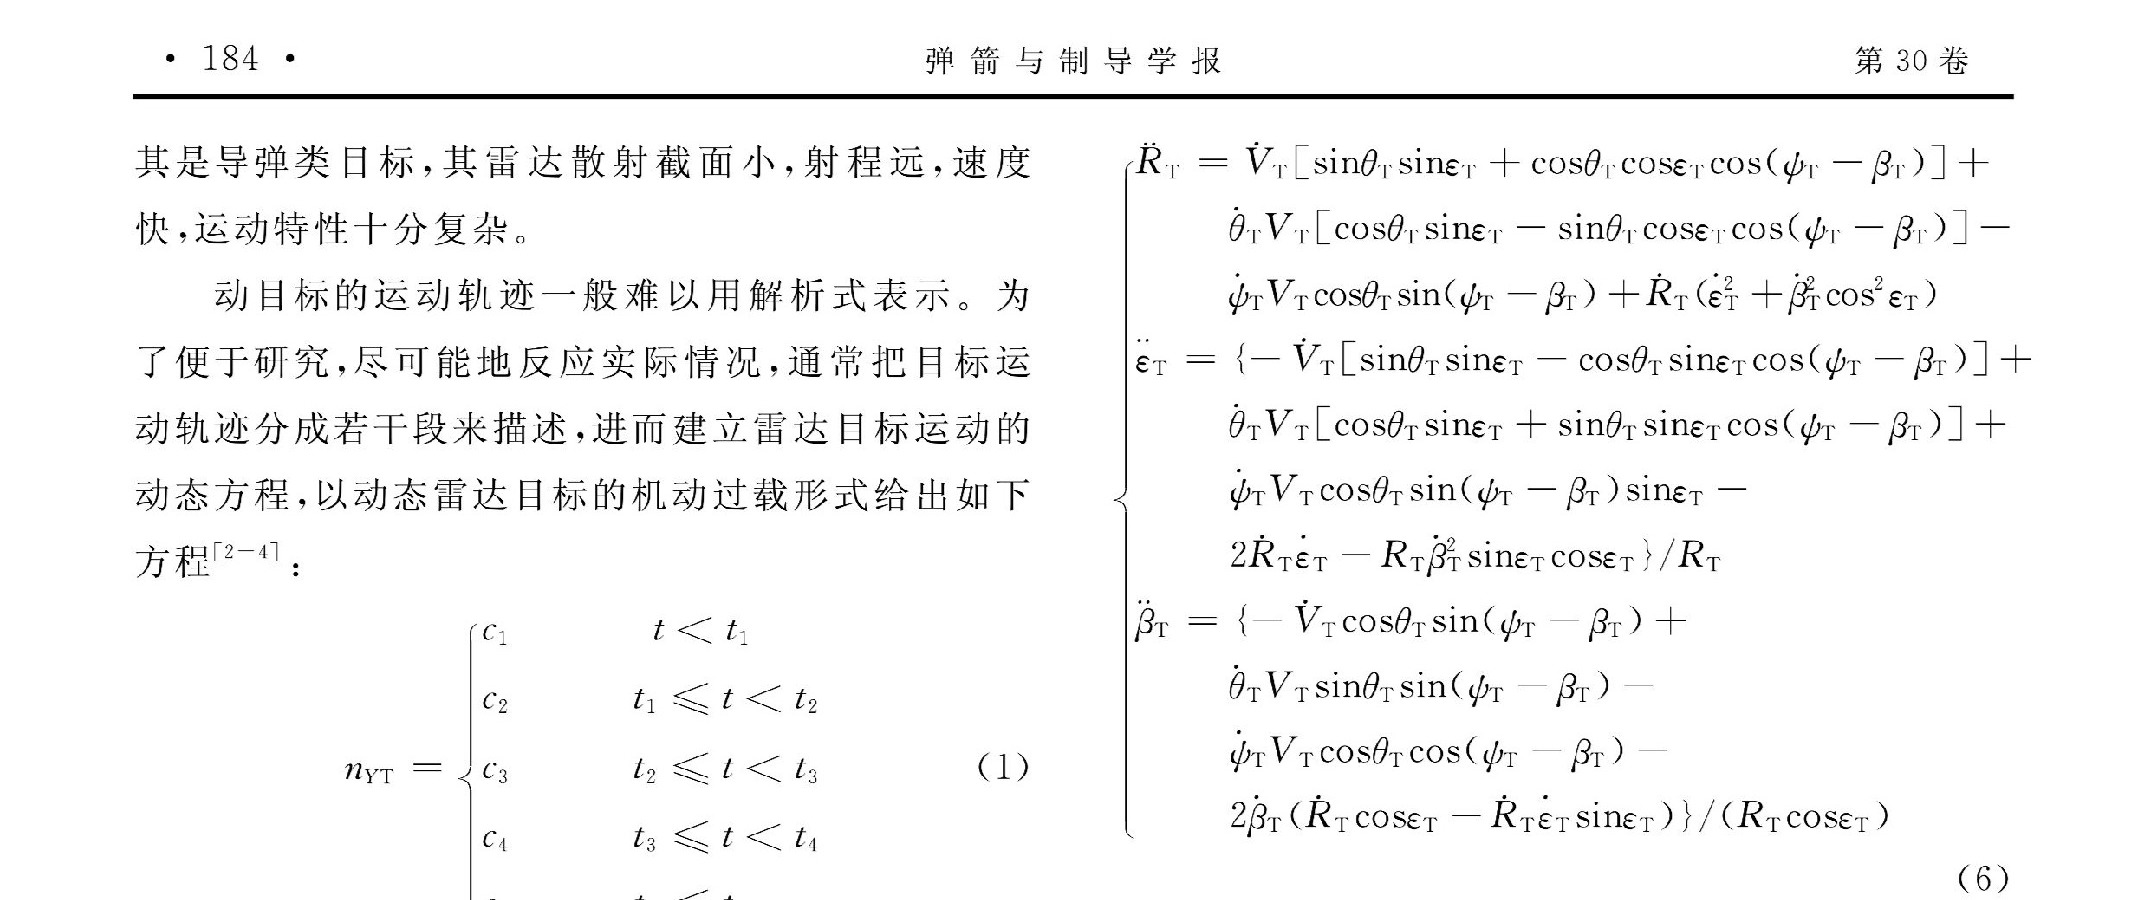 · 184 ·
弹箭与制导学报
第 30 卷
其是导弹类目标,其雷达散射截面小,射程远,速度
快,运动特性十分复杂。
动目标的运动轨迹一般难以用解析式表示。为
了便于研究,尽可能地反应实际情况,通常把目标运
动轨迹分成若干段来描述,进而建立雷达目标运动的
动态方程,以动态雷达目标的机动过载形式给出如下
方程[2-4]:
c₁ t < t₁
c₂ t₁ ⩽ t < t₂
n_YT = { c₃ t₂ ⩽ t < t₃ (1)
c₄ t₃ ⩽ t < t₄
R̈_T = V̇_T[sinθ_T sinε_T + cosθ_T cosε_T cos(ψ_T − β_T)] +
θ̇_T V_T[cosθ_T sinε_T − sinθ_T cosε_T cos(ψ_T − β_T)] −
ψ̇_T V_T cosθ_T sin(ψ_T − β_T) + Ṙ_T(ε̇²_T + β̇²_T cos²ε_T)
ε̈_T = {− V̇_T[sinθ_T sinε_T − cosθ_T sinε_T cos(ψ_T − β_T)] +
θ̇_T V_T[cosθ_T sinε_T + sinθ_T sinε_T cos(ψ_T − β_T)] +
ψ̇_T V_T cosθ_T sin(ψ_T − β_T)sinε_T −
2Ṙ_T ε̇_T − R_T β̇²_T sinε_T cosε_T}/R_T
β̈_T = {− V̇_T cosθ_T sin(ψ_T − β_T) +
θ̇_T V_T sinθ_T sin(ψ_T − β_T) −
ψ̇_T V_T cosθ_T cos(ψ_T − β_T) −
2β̇_T(Ṙ_T cosε_T − Ṙ_T ε̇_T sinε_T)}/(R_T cosε_T)
(6)